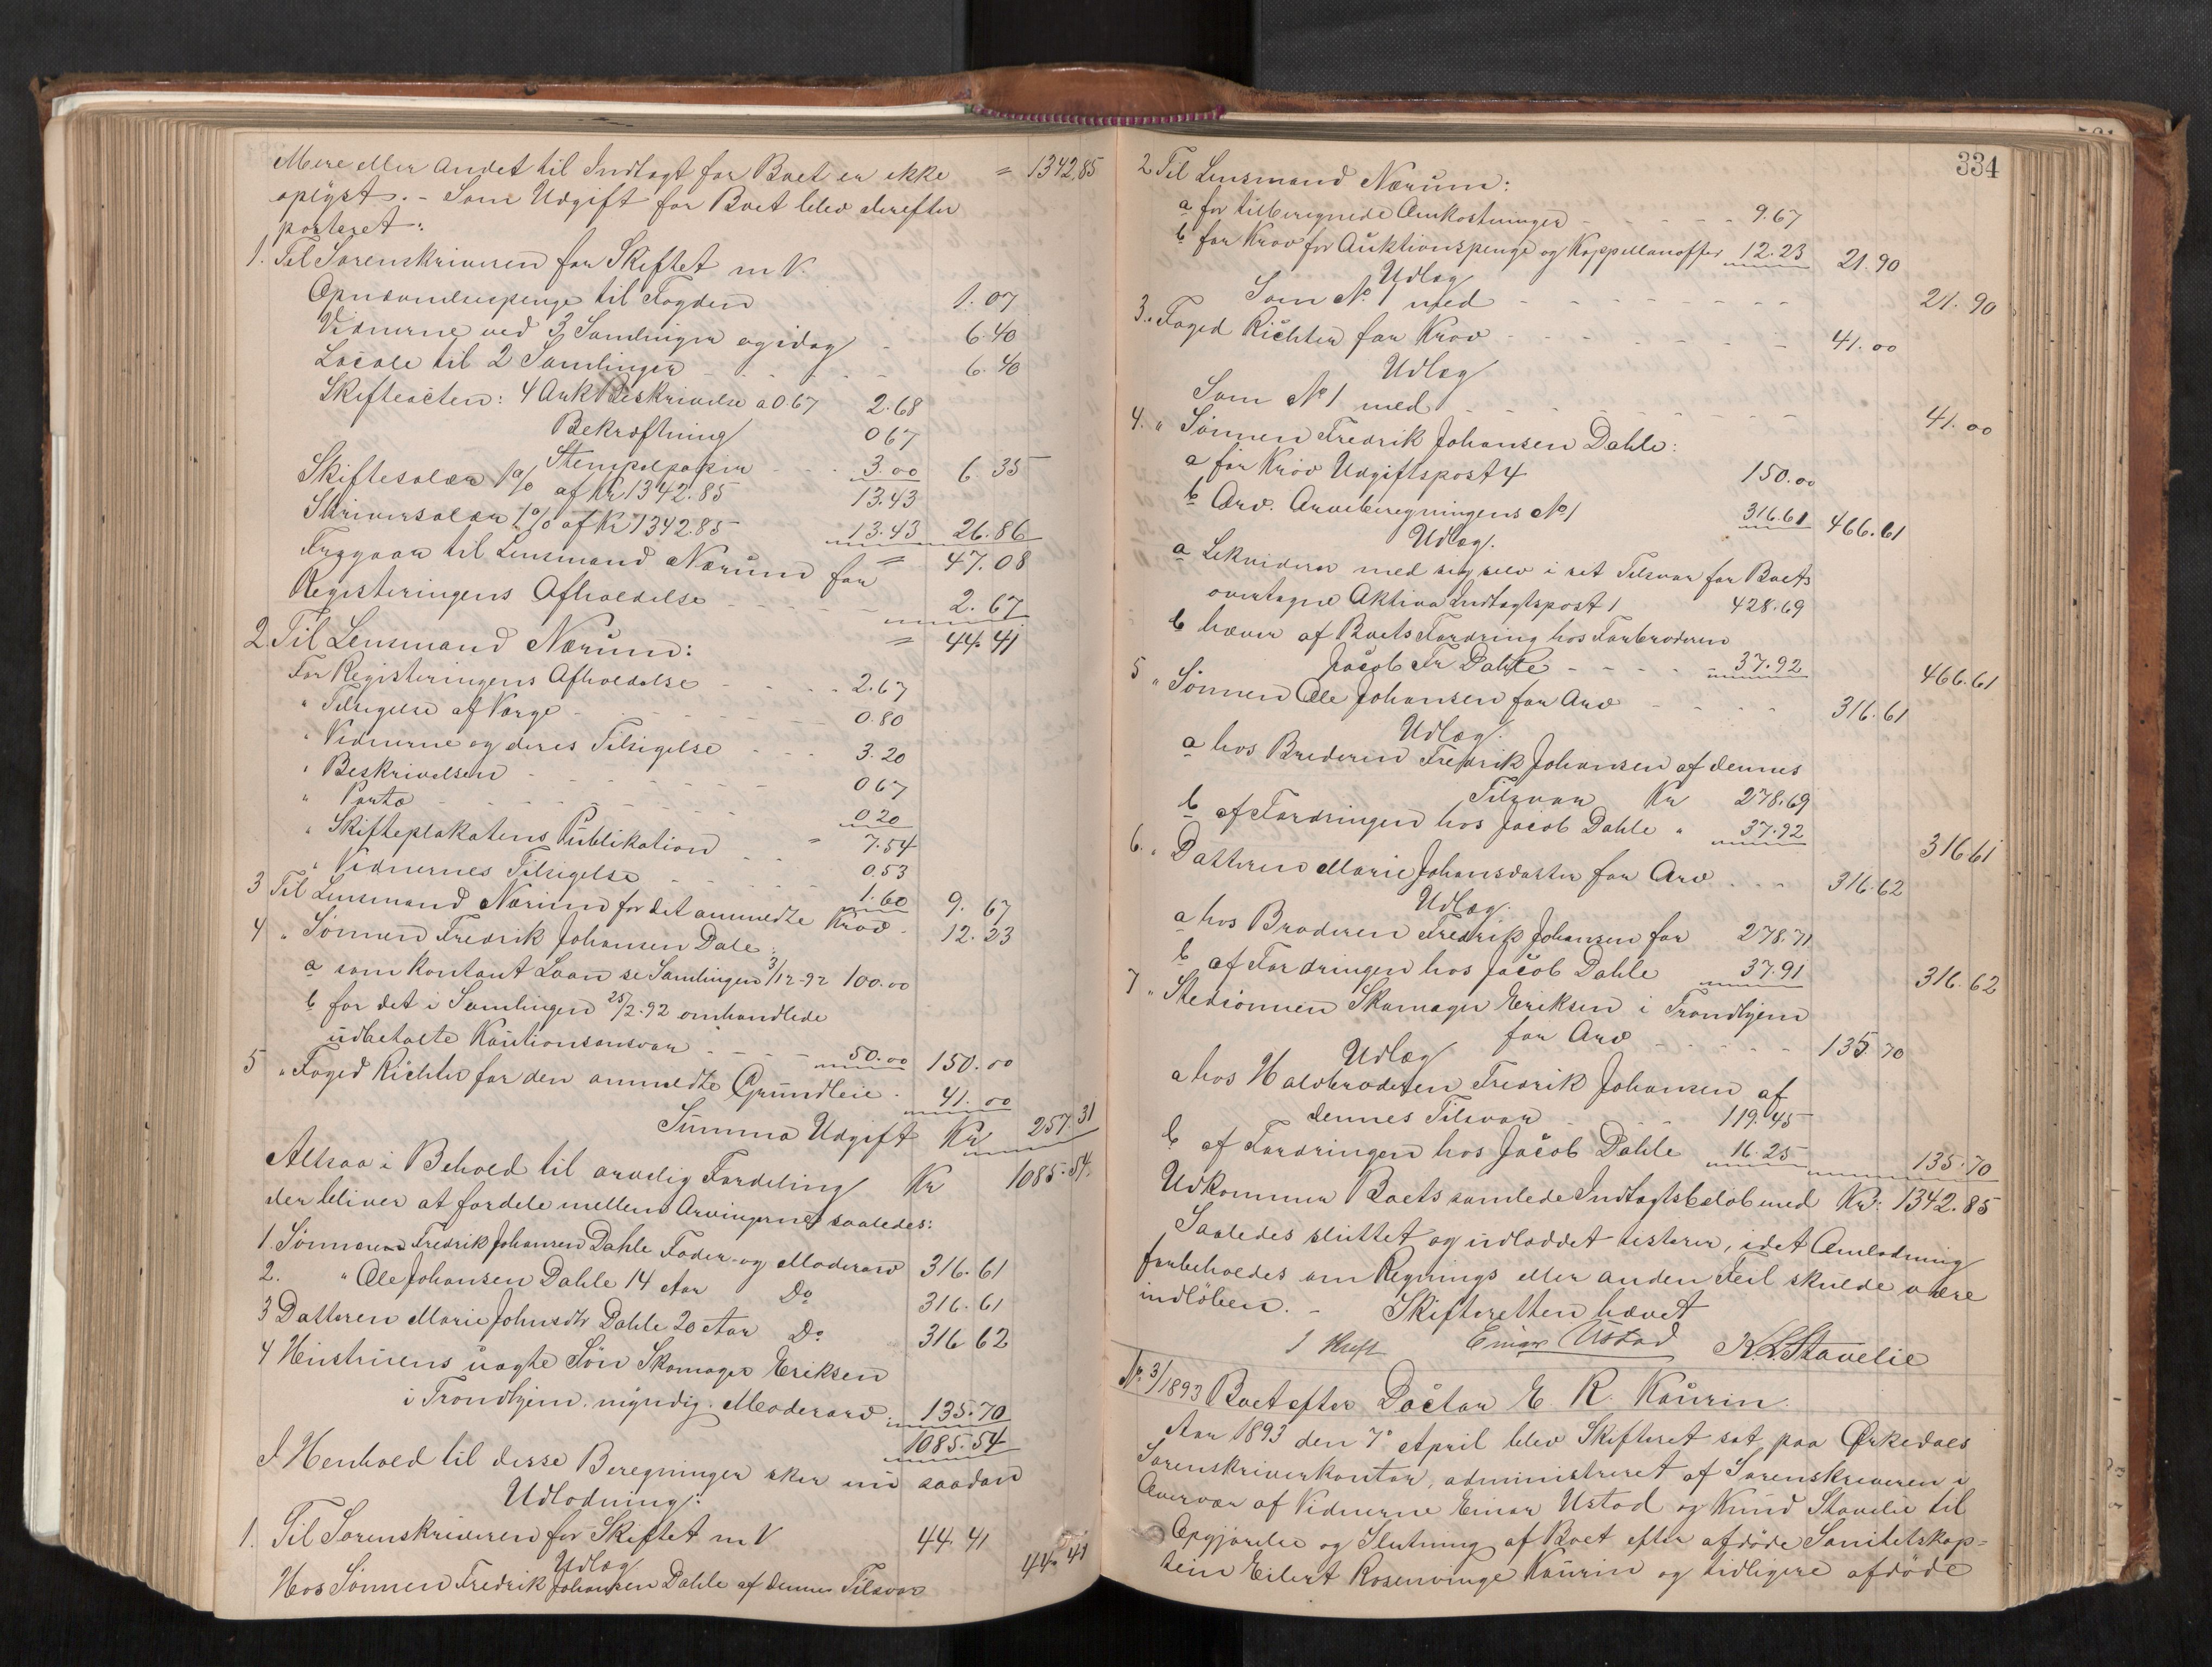 Mere eller andet til Indtægt for Boet er ikke = 1342.85
oplyst. - Som Udgift for Boet blev derefter
posteret:
1. Til Sorenskriveren for Skiftet m V.
Opnævnelsespenge til Fogden 1.07
Vidnerne ved 3 Samlinger og idag - 6.40
Locale til 2 Samlinger - - - - - 6.40
Skifteacten: 4 Ark Beskrivelse a 0.67 2.68
Bekræftning 0 67
Stempelpapir - - - 3.00 6.35
Skiftesalær 1 % af Kr 1342.85 13.43
Skriversalær 1 % af Kr 1342.85 13.43 26.86
= 47.08
Fragaar til Lensmand Nærum for
Registeringens Afholdelse - - - - - 2.67
= 44.41
2 Til Lensmand Nærum:
For Registeringens Afholdelse - - - - 2.67
" Tilsigelse af Værge - - - - - - - 0.80
" Vidnerne og deres Tilsigelse - - - 3.20
" Beskrivelsen - - - - - - - 0 67
" Porto - - - - - - - - 0 20
= 7.54
" Skifteplakatens Publikation - - 0.53
" Vidnernes Tilsigelse - - - - - 1.60 9.67
3 Til Lensmand Nærum for det anmeldte Krav - 12.23
4 " Sønnen Fredrik Johansen Dale:
a som kontant Laan se Samlingen 3/12-92 100.00
b for det i Samlingen 25/2-92 omhandlede
udbetalte Kautionsansvar - - - - 50.00 150.00
5 " Foged Richter for den anmeldte Grundleie - 41.00
Summa Udgift Kr 257.31
Altsaa i Behold til arvelig Fordeling Kr 1085.54.
der bliver at fordele mellem Arvingerne saaledes:
1. Sønnen Fredrik Johansen Dahle Fader- og Moderarv 316.61
2. " Ole Johansen Dahle 14 Aar Do 316.61
3 Datteren Marie Johnsdtr Dahle 20 Aar Do 316 62
4 Hustruens uægte Søn Skomager Eriksen
i Trondhjem. myndig. Moderarv. 135.70
1085.54
I Henhold til disse Beregninger sker nu saadan
Udlodning:
1. Til Sorenskriveren for Skiftet m V 44.41
Udlæg
Hos Sønnen Fredrik Johansen Dahle af dennes Tilsvar 44.41
334
2 Til Lensmand Nærum:
a for tilberegnede Omkostninger - - - - - 9.67
b for Krav for Auktionspenge og Kappellanoffer 12.23 21.90
Udlæg
Som No 1 med - - - - - - - - 21.90
3. " Foged Richter for Krav - - - - - - - 41.00
Udlæg
Som No 1 med - - - - - - - - - 41.00
4. " Sønnen Fredrik Johansen Dahle:
a for Krav Udgiftspost 4 150.00
b Arv. Arveberegningens No 1 316.61 466.61
Udlæg.
a Likviderer med sig selv i sit Tilsvar for Boets
overtagne Aktiva Indtægtspost 1 428.69
b hæver af Boets Fordring hos Farbroderen
Jacob Fr Dahle - - - - - 37.92 466.61
5 " Sønnen Ole Johansen for Arv - - - - 316.61
Udlæg.
a hos Broderen Fredrik Johansen af dennes
Tilsvar Kr 278.69
b af Fordringen hos Jacob Dahle " 37.92 316 61
6. " Datteren Marie Johansdatter for Arv - - - 316.62
Udlæg.
a hos Broderen Fredrik Johansen for 278.71
b af Fordringen hos Jacob Dahle 37.91 316.62
7 " Stedsønnen Skomager Eriksen i Trondhjem
for Arv - - - - - 135.70
Udlæg
a hos Halvbroderen Fredrik Johansen af
dennes Tilsvar - - - - 119.45
b af Fordringen hos Jacob Dahle 16.25 135.70
Udkommer Boets samlede Indtægtsbeløb med Kr: 1342.85
Saaledes sluttet og udloddet testerer, idet Omlodning
forbeholdes om Regnings eller anden Feil skulde være
indløben. - Skifteretten hævet
Einar Ustad K. L. Stavelie
No 3/1893 Boet efter Doctor E. R. Kaurin.
Aar 1893 den 7de April blev Skifteret sat paa Ørkedals
Sorenskriverkontor, administreret af Sorenskriveren i
Overvær af Vidnerne Einar Ustad og Knud Stavelie til
Opgjørelse og Slutning af Boet efter afdøde Sanitetskap-
tein Eilert Rosenvinge Kaurin og tidligere afdøde